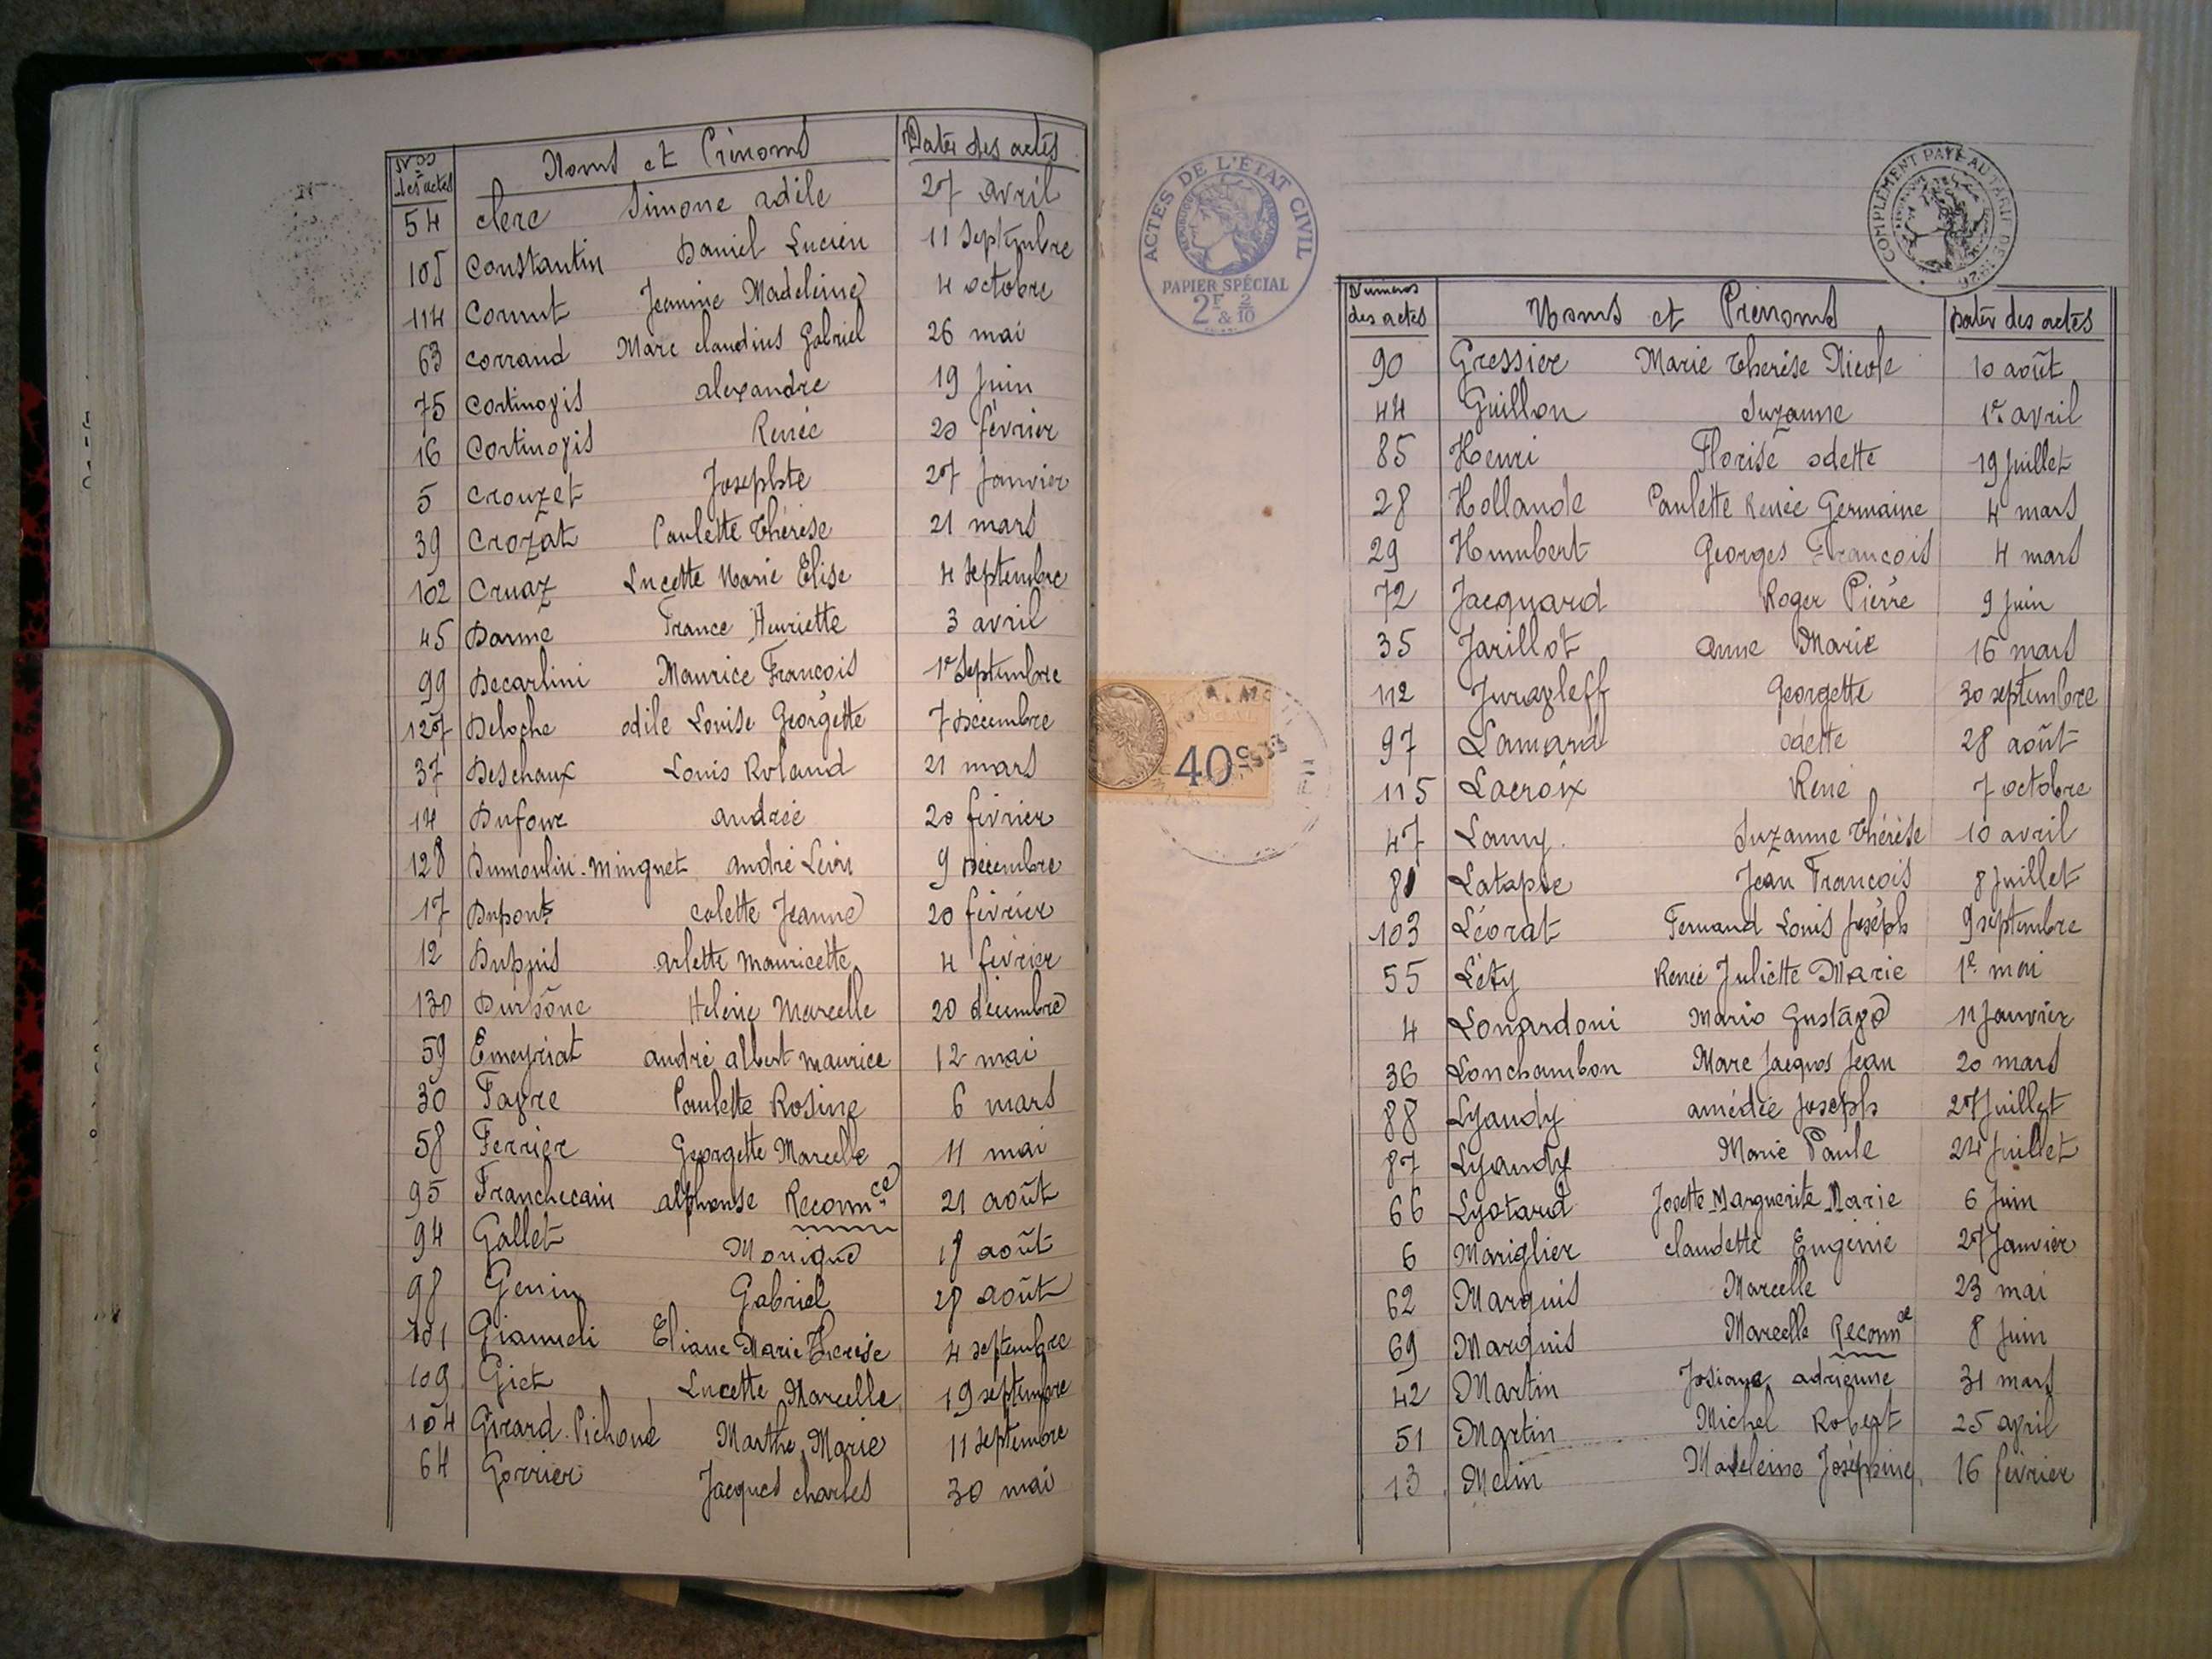 Nos des actes Noms et Prénoms Dates des actes
54 Clerc Simone Adèle 27 avril
105 Constantin Daniel Lucien 11 Septembre
114 Cornut Jeannine Madeleine 4 octobre
63 Corrand Marc Claudius Gabriel 26 mai
75 Cortinovis Alexandre 19 Juin
16 Cortinovis Renée 20 février
5 Crouzet 27 Janvier
39 Crozat Paulette Thérèse 21 mars
102 Cruaz Lucette Marie Elise 4 Septembre
45 Darme France Henriette 3 avril
99 Decarlini Maurice François 1er Septembre
127 Deloche Odile Louise Georgette 7 Décembre
37 Deschaux Louis Roland 21 mars
14 Dufour Andrée 20 février
128 Dumoulin-Minguet André Léon 9 Décembre
17 Dupont Colette Jeanne 20 février
12 Dupuis Arlette Mauricette 4 février
130 Hélène Marcelle 20 décembre
59 Emeyriat André Albert Maurice 12 mai
30 Favre Paulette Rosine 6 mars
58 Ferrier Georgette Marcelle 11 mai
95 Franchecain Alphonse Reconnce 21 août
94 Gallet Monique 18 août
98 Genin Gabriel 28 août
101 Eliane Marie Thérèse 4 septembre
109 Giet Lucette Marcelle 19 septembre
104 Girard-Pichoud Marthe Marie 11 Septembre
64 Gorrier Jacques Charles 30 mai
ACTES DE L'ÉTAT CIVIL
PAPIER SPÉCIAL
2F & 2/10
COMPLÉMENT PAYÉ AU TARIF DE
40c
Numéros des actes Noms et Prénoms Dates des actes
90 Gressier Marie Thérèse Nicole 10 août
44 Guillon Suzanne 1er avril
85 Henri Florise Odette 19 Juillet
28 Hollande Paulette Renée Germaine 4 mars
29 Humbert Georges François 4 mars
72 Jacquard Roger Pierre 9 Juin
35 Jarillot Anne Marie 16 mars
112 Juravleff Georgette 30 septembre
97 Lamard Odette 28 août
115 Lacroix René 7 octobre
47 Lamy Suzanne Thérèse 10 avril
81 Latapie Jean François 8 Juillet
103 Léorat Fernand Louis Joseph 9 septembre
55 Léty Renée Juliette Marie 1er mai
4 Lonardoni Mario Gustavo 11 Janvier
36 Lonchambon Marc Jacques Jean 20 mars
88 Lyaudy Amédée Joseph 27 Juillet
87 Lyaudy Marie Paule 24 Juillet
66 Lyotard Josette Marguerite Marie 6 Juin
6 Mariglier Claudette Eugénie 27 Janvier
62 Marquis Marcelle 23 mai
69 Marquis Marcelle Reconnce 8 Juin
42 Martin Josiane Adrienne 31 mars
51 Martin Michel Robert 25 avril
13 Melin Madeleine Joséphine 16 février